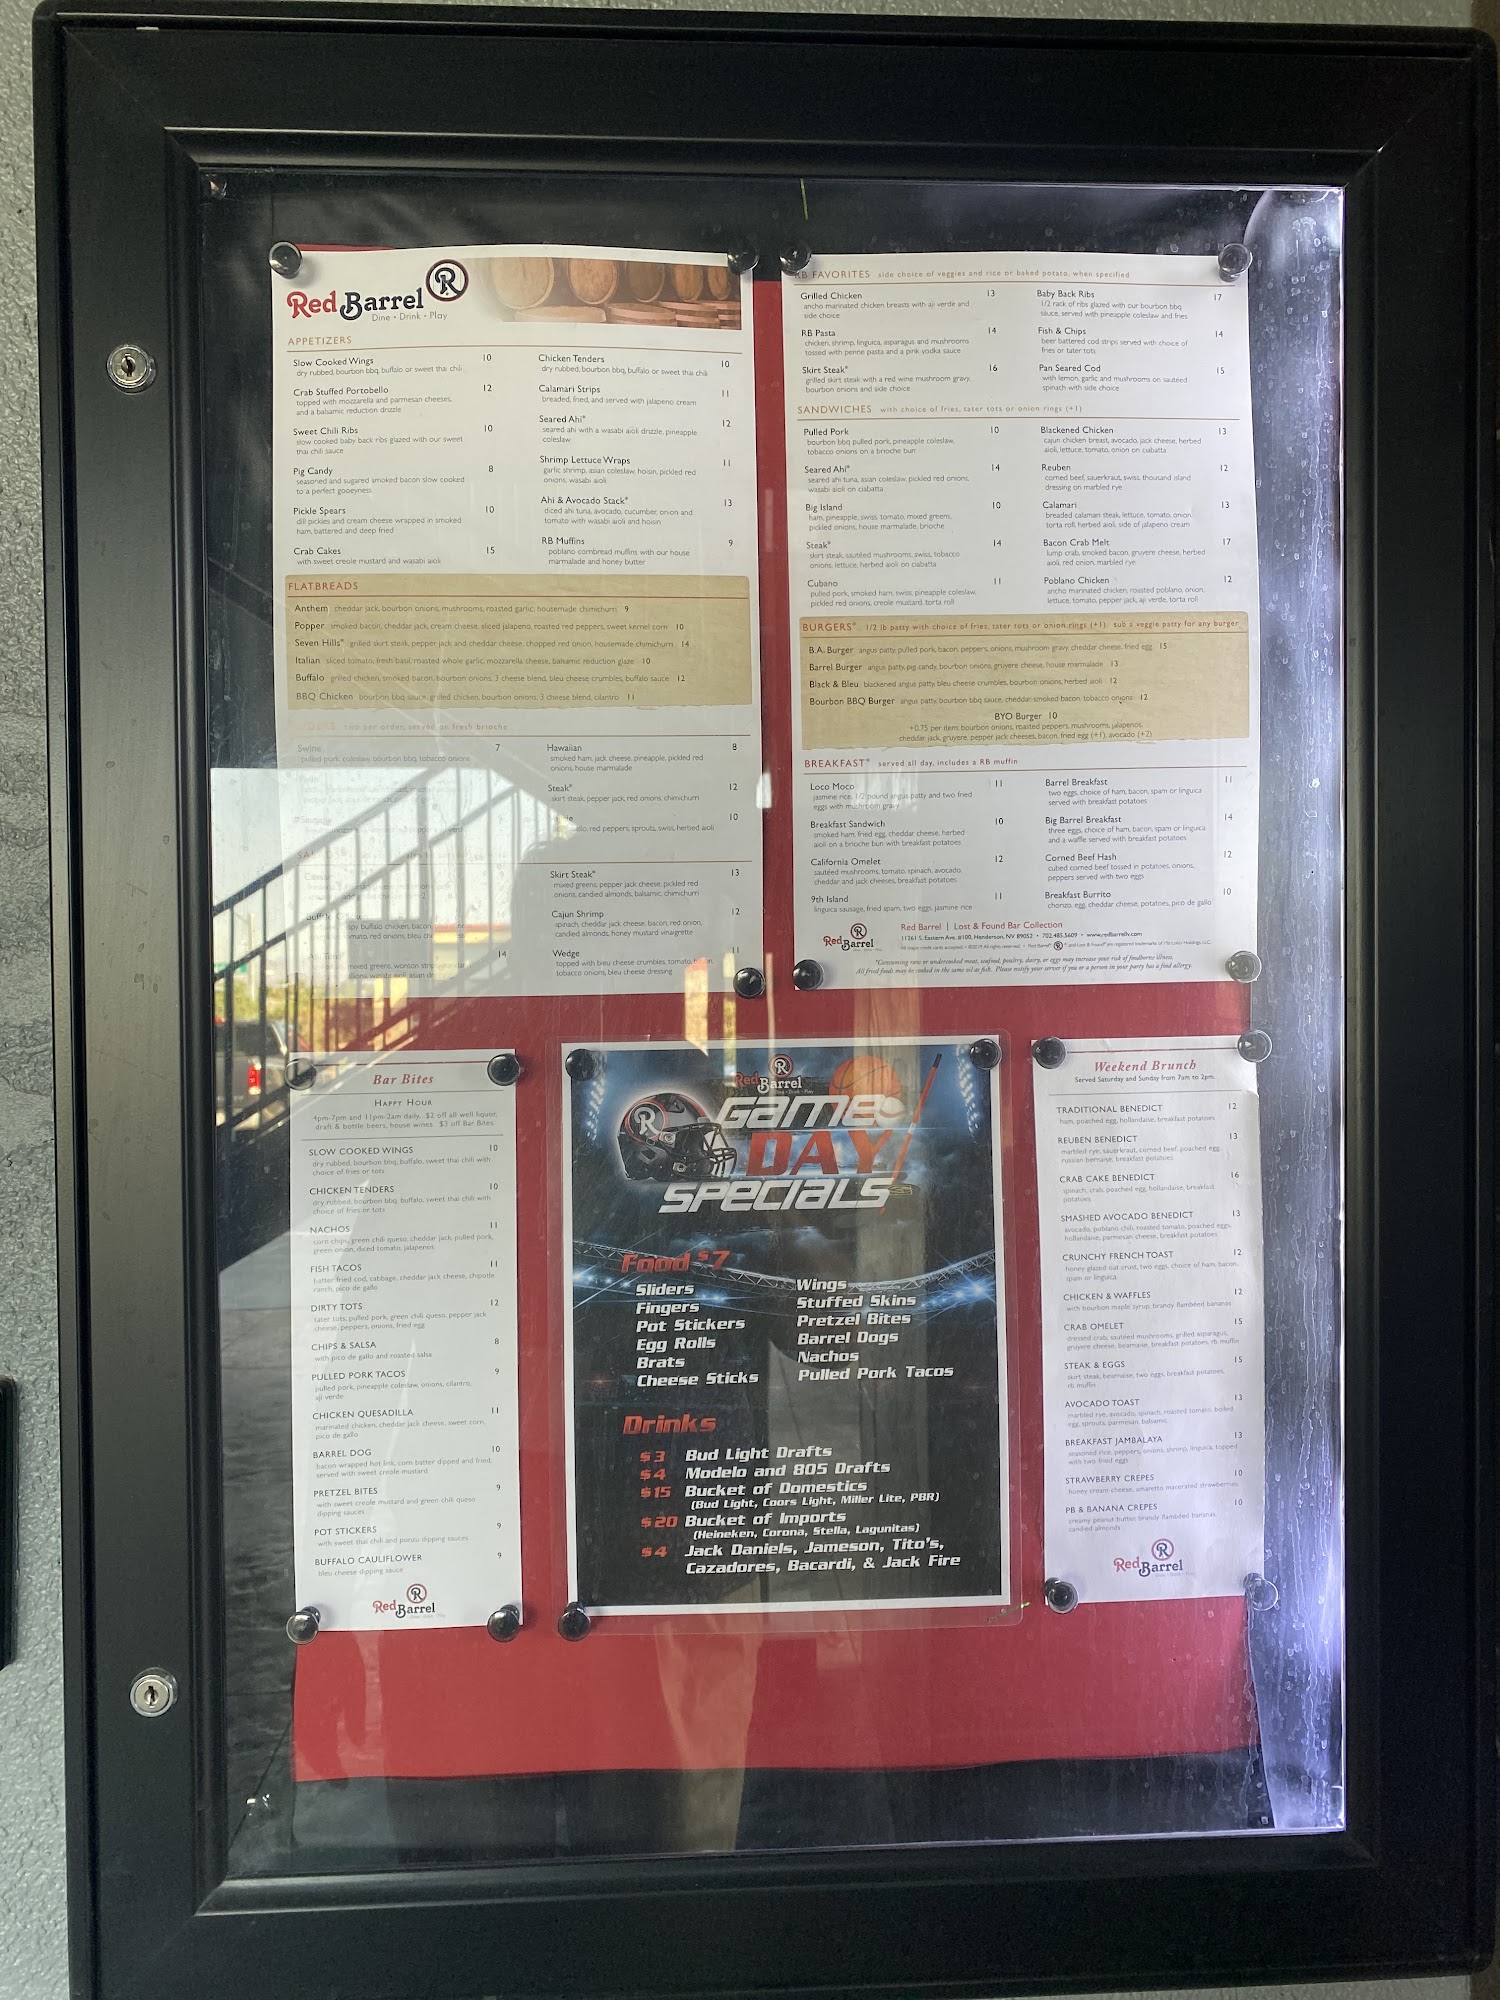 Red Barrel
Dine • Drink • Play
APPETIZERS
Slow Cooked Wings 10
dry rubbed, bourbon bbq, buffalo or sweet thai chili
Crab Stuffed Portobello 12
topped with mozzarella and parmesan cheeses,
and a balsamic reduction drizzle
Sweet Chili Ribs 10
slow cooked baby back ribs glazed with our sweet
thai chili sauce
Pig Candy 8
seasoned and sugared smoked bacon slow cooked
to a perfect gooeyness
Pickle Spears 10
dill pickles and cream cheese wrapped in smoked
ham, battered and deep fried
Crab Cakes 15
with sweet creole mustard and wasabi aioli
Chicken Tenders 10
dry rubbed, bourbon bbq, buffalo or sweet thai chili
Calamari Strips 11
breaded, fried, and served with jalapeno cream
Seared Ahi* 12
seared ahi with a wasabi aioli drizzle, pineapple
coleslaw
Shrimp Lettuce Wraps 11
garlic shrimp, asian coleslaw, hoisin, pickled red
onions, wasabi aioli
Ahi & Avocado Stack* 13
diced ahi tuna, avocado, cucumber, onion and
tomato with wasabi aioli and hoisin
RB Muffins 9
poblano cornbread muffins with our house
marmalade and honey butter
FLATBREADS
Anthem cheddar jack, bourbon onions, mushrooms, roasted garlic, housemade chimichurri 9
Popper smoked bacon, cheddar jack, cream cheese, sliced jalapeno, roasted red peppers, sweet kernel corn 10
Seven Hills* grilled skirt steak, pepper jack and cheddar cheese, chopped red onion, housemade chimichurri 14
Italian sliced tomato, fresh basil, roasted whole garlic, mozzarella cheese, balsamic reduction glaze 10
Buffalo grilled chicken, smoked bacon, bourbon onions, 3 cheese blend, bleu cheese crumbles, buffalo sauce 12
BBQ Chicken bourbon bbq sauce, grilled chicken, bourbon onions, 3 cheese blend, cilantro 11
two per order, served on fresh brioche
Swine 7
pulled pork, coleslaw, bourbon bbq, tobacco onions
Hawaiian 8
smoked ham, jack cheese, pineapple, pickled red
onions, house marmalade
Steak* 12
skirt steak, pepper jack, red onions, chimichurri
10
red peppers, sprouts, swiss, herbed aioli
buffalo chicken, bacon,
red onions, bleu
14
mixed greens, wonton
Skirt Steak* 13
mixed greens, pepper jack cheese, pickled red
onions, candied almonds, balsamic, chimichurri
Cajun Shrimp 12
spinach, cheddar jack cheese, bacon, red onion,
candied almonds, honey mustard vinaigrette
Wedge 11
topped with bleu cheese crumbles, tomato, bacon,
tobacco onions, bleu cheese dressing
RB FAVORITES side choice of veggies and rice or baked potato, when specified
Grilled Chicken 13
ancho marinated chicken breasts with aji verde and
side choice
RB Pasta 14
chicken, shrimp, linguica, asparagus and mushrooms
tossed with penne pasta and a pink vodka sauce
Skirt Steak* 16
grilled skirt steak with a red wine mushroom gravy,
bourbon onions and side choice
Baby Back Ribs 17
1/2 rack of ribs glazed with our bourbon bbq
sauce, served with pineapple coleslaw and fries
Fish & Chips 14
beer battered cod strips served with choice of
fries or tater tots
Pan Seared Cod 15
with lemon, garlic and mushrooms on sautéed
spinach with side choice
SANDWICHES with choice of fries, tater tots or onion rings (+1)
Pulled Pork 10
bourbon bbq pulled pork, pineapple coleslaw,
tobacco onions on a brioche bun
Seared Ahi* 14
seared ahi tuna, asian coleslaw, pickled red onions,
wasabi aioli on ciabatta
Big Island 10
ham, pineapple, swiss, tomato, mixed greens,
pickled onions, house marmalade, brioche
Steak* 14
skirt steak, sautéed mushrooms, swiss, tobacco
onions, lettuce, herbed aioli on ciabatta
Cubano 11
pulled pork, smoked ham, swiss, pineapple coleslaw,
pickled red onions, creole mustard, torta roll
Blackened Chicken 13
cajun chicken breast, avocado, jack cheese, herbed
aioli, lettuce, tomato, onion on ciabatta
Reuben 12
corned beef, sauerkraut, swiss, thousand island
dressing on marbled rye
Calamari 13
breaded calamari steak, lettuce, tomato, onion,
torta roll, herbed aioli, side of jalapeno cream
Bacon Crab Melt 17
lump crab, smoked bacon, gruyere cheese, herbed
aioli, red onion, marbled rye
Poblano Chicken 12
ancho marinated chicken, roasted poblano, onion,
lettuce, tomato, pepper jack, aji verde, torta roll
BURGERS* 1/2 lb patty with choice of fries, tater tots or onion rings (+1) sub a veggie patty for any burger
B.A. Burger angus patty, pulled pork, bacon, peppers, onions, mushroom gravy, cheddar cheese, fried egg 15
Barrel Burger angus patty, pig candy, bourbon onions, gruyere cheese, house marmalade 13
Black & Bleu blackened angus patty, bleu cheese crumbles, bourbon onions, herbed aioli 12
Bourbon BBQ Burger angus patty, bourbon bbq sauce, cheddar, smoked bacon, tobacco onions 12
BYO Burger 10
+0.75 per item: bourbon onions, roasted peppers, mushrooms, jalapenos,
cheddar jack, gruyere, pepper jack cheeses, bacon, fried egg (+1), avocado (+2)
BREAKFAST* served all day, includes a RB muffin
Loco Moco 11
jasmine rice, 1/2 pound angus patty and two fried
eggs with mushroom gravy
Breakfast Sandwich 10
smoked ham, fried egg, cheddar cheese, herbed
aioli on a brioche bun with breakfast potatoes
California Omelet 12
sautéed mushrooms, tomato, spinach, avocado,
cheddar and jack cheeses, breakfast potatoes
9th Island 11
linguica sausage, fried spam, two eggs, jasmine rice
Barrel Breakfast 11
two eggs, choice of ham, bacon, spam or linguica
served with breakfast potatoes
Big Barrel Breakfast 14
three eggs, choice of ham, bacon, spam or linguica
and a waffle served with breakfast potatoes
Corned Beef Hash 12
cubed corned beef tossed in potatoes, onions,
peppers served with two eggs
Breakfast Burrito 10
chorizo, egg, cheddar cheese, potatoes, pico de gallo
Red Barrel
Red Barrel | Lost & Found Bar Collection
11261 S. Eastern Ave, #100, Henderson, NV 89052 • 702.485.5609 • www.redbarrellv.com
*Consuming raw or undercooked meat, seafood, poultry, dairy, or eggs may increase your risk of foodborne illness.
All fried foods may be cooked in the same oil as fish. Please notify your server if you or a person in your party has a food allergy.
Bar Bites
HAPPY HOUR
4pm-7pm and 11pm-2am daily. $2 off all well liquor,
draft & bottle beers, house wines. $3 off Bar Bites.
SLOW COOKED WINGS 10
dry rubbed, bourbon bbq, buffalo, sweet thai chili with
choice of fries or tots
CHICKEN TENDERS 10
dry rubbed, bourbon bbq, buffalo, sweet thai chili with
choice of fries or tots
NACHOS 11
corn chips, green chili queso, cheddar jack, pulled pork,
green onion, diced tomato, jalapenos
FISH TACOS 11
batter fried cod, cabbage, cheddar jack cheese, chipotle
ranch, pico de gallo
DIRTY TOTS 12
tater tots, pulled pork, green chili queso, pepper jack
cheese, peppers, onions, fried egg
CHIPS & SALSA 8
with pico de gallo and roasted salsa
PULLED PORK TACOS 9
pulled pork, pineapple coleslaw, onions, cilantro,
aji verde
CHICKEN QUESADILLA 11
marinated chicken, cheddar jack cheese, sweet corn,
pico de gallo
BARREL DOG 10
bacon wrapped hot link, corn batter dipped and fried,
served with sweet creole mustard
PRETZEL BITES 9
with sweet creole mustard and green chili queso
dipping sauces
POT STICKERS 9
with sweet thai chili and ponzu dipping sauces
BUFFALO CAULIFLOWER 9
bleu cheese dipping sauce
Red Barrel
Red Barrel
GAME
DAY
SPECIALS
Food $7
Sliders
Fingers
Pot Stickers
Egg Rolls
Brats
Cheese Sticks
Wings
Stuffed Skins
Pretzel Bites
Barrel Dogs
Nachos
Pulled Pork Tacos
Drinks
$3 Bud Light Drafts
$4 Modelo and 805 Drafts
$15 Bucket of Domestics
(Bud Light, Coors Light, Miller Lite, PBR)
$20 Bucket of Imports
(Heineken, Corona, Stella, Lagunitas)
$4 Jack Daniels, Jameson, Tito's,
Cazadores, Bacardi, & Jack Fire
Weekend Brunch
Served Saturday and Sunday from 7am to 2pm.
TRADITIONAL BENEDICT 12
ham, poached egg, hollandaise, breakfast potatoes
REUBEN BENEDICT 13
marbled rye, sauerkraut, corned beef, poached egg,
russian bernaise, breakfast potatoes
CRAB CAKE BENEDICT 16
spinach, crab, poached egg, hollandaise, breakfast
potatoes
SMASHED AVOCADO BENEDICT 13
avocado, poblano chili, roasted tomato, poached eggs,
hollandaise, parmesan cheese, breakfast potatoes
CRUNCHY FRENCH TOAST 12
honey glazed oat crust, two eggs, choice of ham, bacon,
spam or linguica
CHICKEN & WAFFLES 12
with bourbon maple syrup, brandy flambéed bananas
CRAB OMELET 15
dressed crab, sautéed mushrooms, grilled asparagus,
gruyere cheese, bearnaise, breakfast potatoes, rb muffin
STEAK & EGGS 15
skirt steak, bearnaise, two eggs, breakfast potatoes,
rb muffin
AVOCADO TOAST 13
marbled rye, avocado, spinach, roasted tomato, boiled
egg, sprouts, parmesan, balsamic
BREAKFAST JAMBALAYA 13
seasoned rice, peppers, onions, shrimp, linguica, topped
with two fried eggs
STRAWBERRY CREPES 10
honey cream cheese, amaretto macerated strawberries
PB & BANANA CREPES 10
creamy peanut butter, brandy flambéed bananas,
candied almonds
Red Barrel